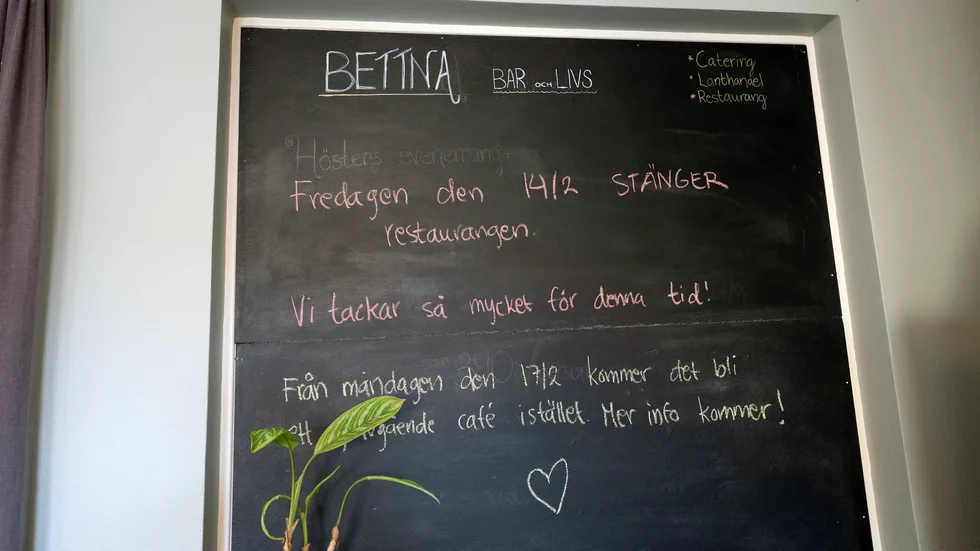 BETTNA BAR och LIVS
* Catering
* Lanthandel
* Restaurang
Höstens evenemang
Fredagen den 14/2 STÄNGER
restaurangen.
Vi tackar så mycket för denna tid!
Från måndagen den 17/2 kommer det bli
ett café istället. Mer info kommer!